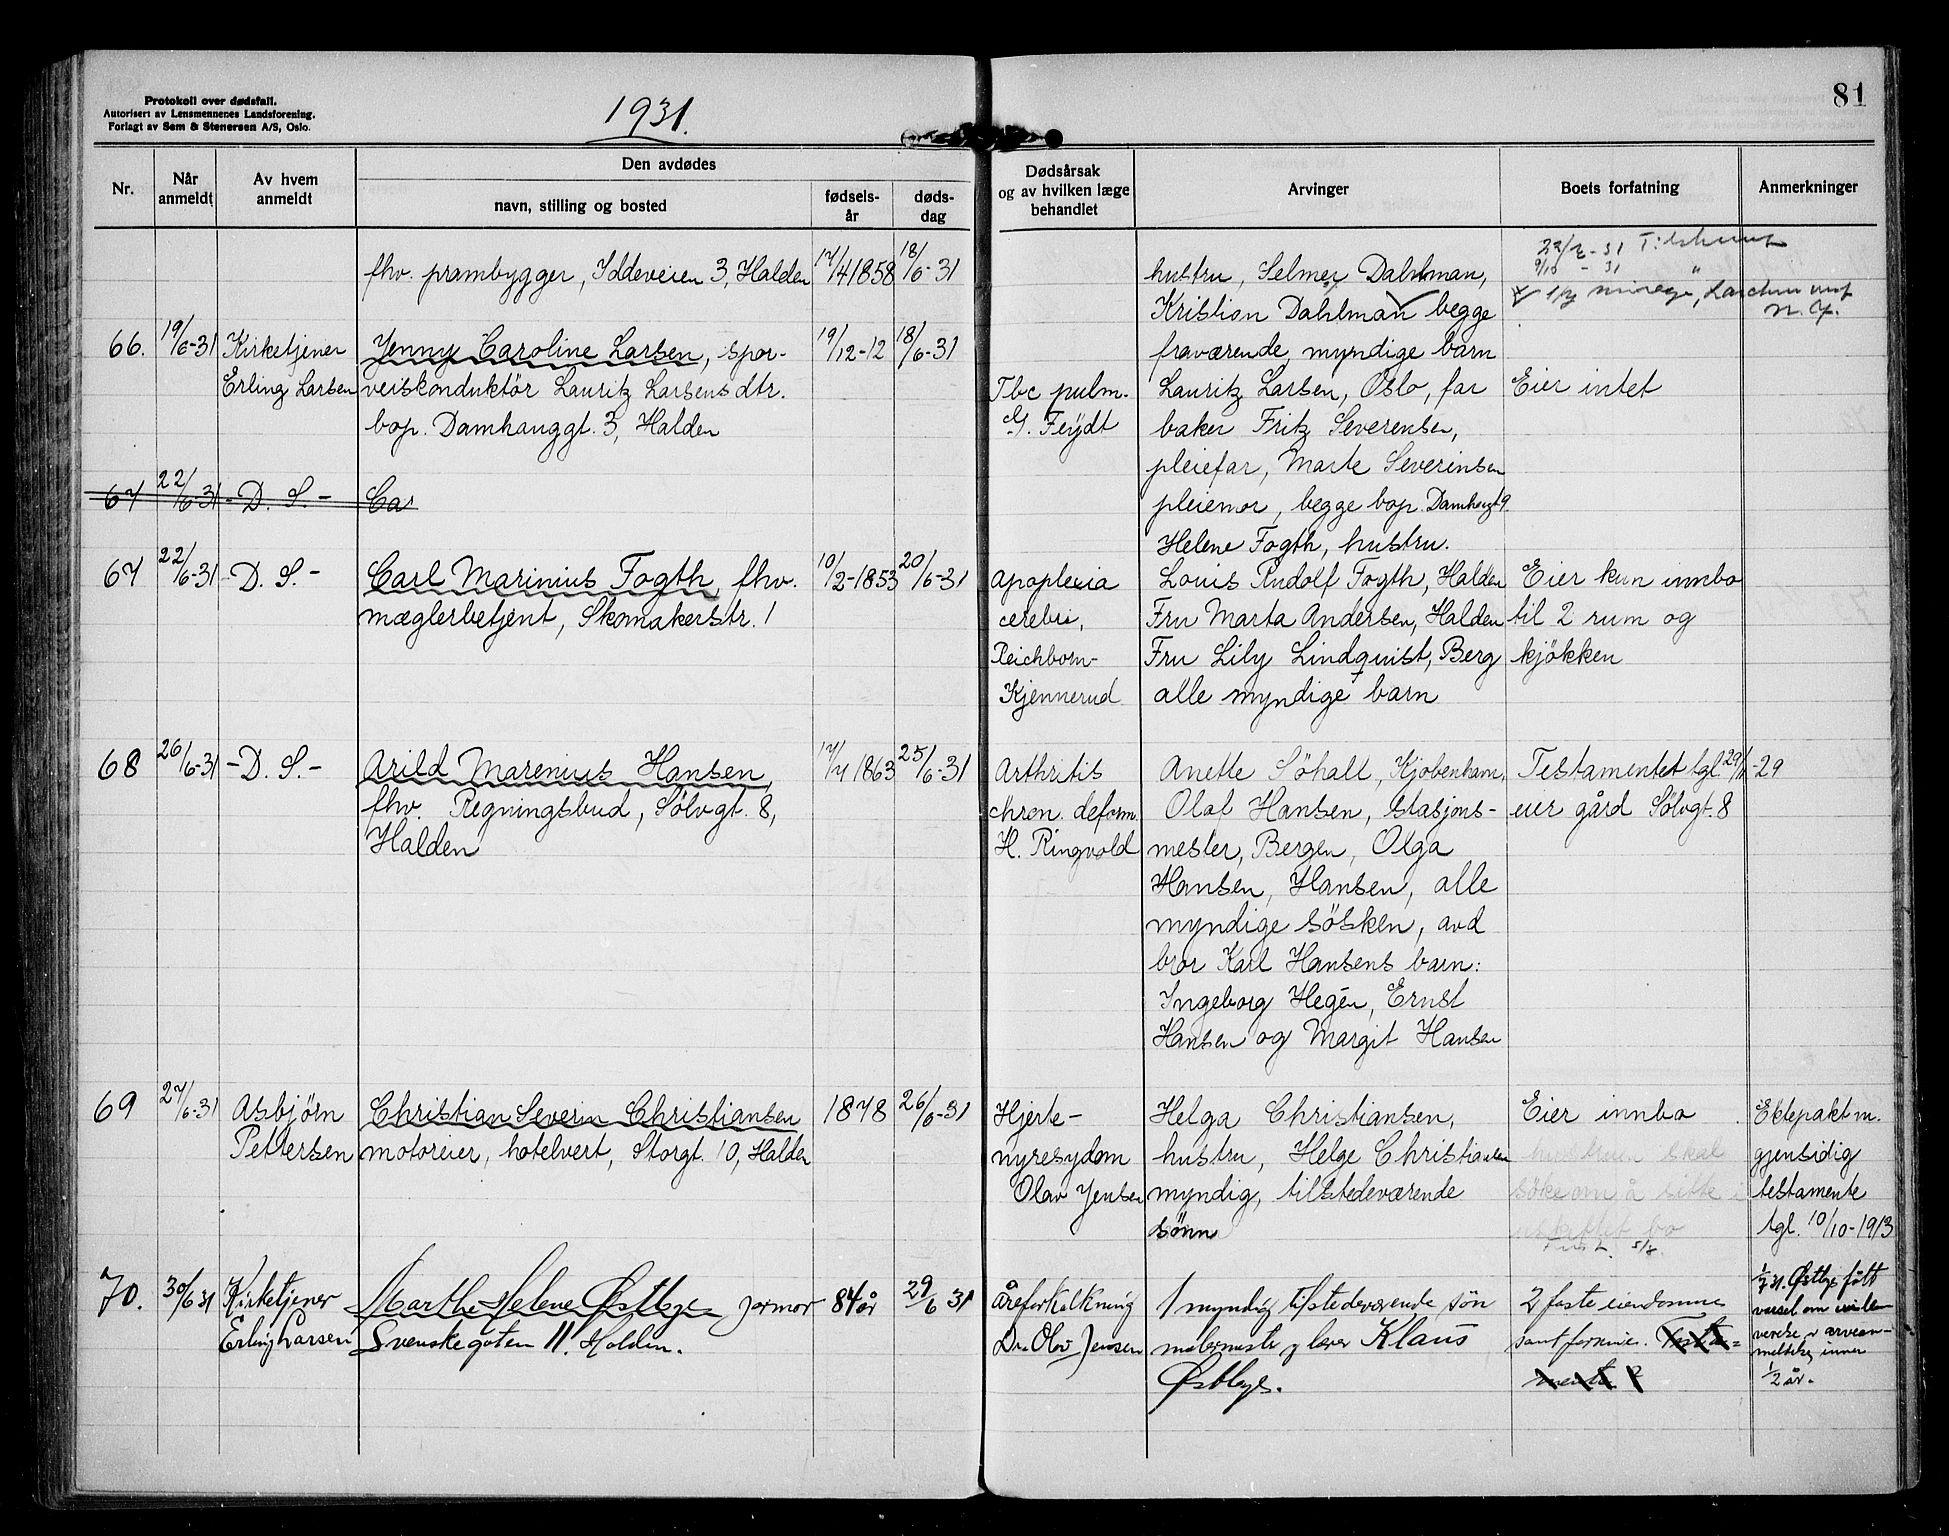 Protokoll over dødsfall.
Autorisert av Lensmennenes Landsforening.
Forlagt av Sem & Stenersen A/S, Oslo.
1931.
81
Nr.
Når anmeldt
Av hvem anmeldt
Den avdødes
navn, stilling og bosted
fødsels-år
døds-dag
Dødsårsak og av hvilken læge behandlet
Arvinger
Boets forfatning
Anmerkninger
fhv. prambygger, Iddeveien 3, Halden
17/4 1858
18/6-31
hustru, Selmer Dahlman,
Kristian Dahlman begge
fraværende, myndige barn
9/10 - 31 "
66.
19/6-31
Kirketjener
Erling Larsen
Jenny Caroline Larsen, spor-
veiskonduktör Lauritz Larsens dtr.
bop. Damhauggt. 3, Halden
19/12-12
18/6-31
Tbc pulm.
G. Feydt
Lauritz Larsen, Oslo, far
baker Fritz Severensen,
pleiefar, Marte Severinsen
pleiemor, begge bop. Damhaugt 9.
Eier intet
67
22/6-31
- D. S. -
Car
67
22/6-31
- D. S. -
Carl Marinius Fogth, fhv.
mæglerbetjent, Skomakerstr. 1
10/2-1853
20/6-31
Apoplexia
cerebri,
Reichborn-
Kjennerud
Helene Fogth, hustru.
Louis Rudolf Fogth, Halden
Fru Marta Andersen, Halden
Fru Lily Lindquist, Berg
alle myndige barn
Eier kun innbo
til 2 rum og
kjökken
68
26/6-31
- D. S. -
Arild Marenius Hansen,
fhv. Regningsbud, Sølvgt. 8,
Halden
17/7 1863
25/6-31
Arthritis
chron. deform.
H. Ringvold
Anette Söhall, Kjöbenhavn,
Olaf Hansen, stasjons-
mester, Bergen, Olga
Hansen, Hansen, alle
myndige sösken, avd
bror Karl Hansens barn:
Ingeborg Hegén, Ernst
Hansen og Margit Hansen
Testamentet tgl. 29/1-29
eier gård Sölvgt. 8
69
27/6-31
Asbjörn
Pettersen
Christian Severin Christiansen
motoreier, hotelvert, Storgt. 10, Halden
1878
26/6-31
Hjerte-
nyresydom
Olav Jensen
Helga Christiansen,
hustru, Helge Christiansen
myndig, tilstedeværende
sönn
Eier innbo
hustruen skal
söke om å sitte i
uskiftet bo
5/8.
Ektepakt m.
gjensidig
testamente
tgl. 10/10-1913
70.
30/6 31
Kirketjener
Erling Larsen
Marthe Helene Østbye jormor
Svenskegaten 11. Halden.
84 år
29/6 31
åreforkalkning
Dr. Olav Jensen
1 myndig tilstedeværende søn
malermester Klaus
Østbye.
2 faste eiendomme
samt formue. Testa-
mente ?
1/7 31. Østbye fått
varsel om
arvean-
meldelse innen
1/2 år.